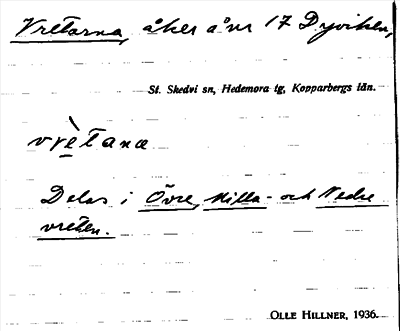 Vretarna, åker å nr 17 Dyviken,
St. Skedvi sn, Hedemora tg, Kopparbergs län.
vrètana
Delas i Övre, Milla- och Nedre
vreten.
OLLE HILLNER, 1936.